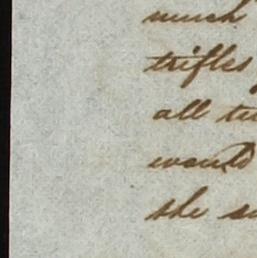 much
trifles
all
would
the